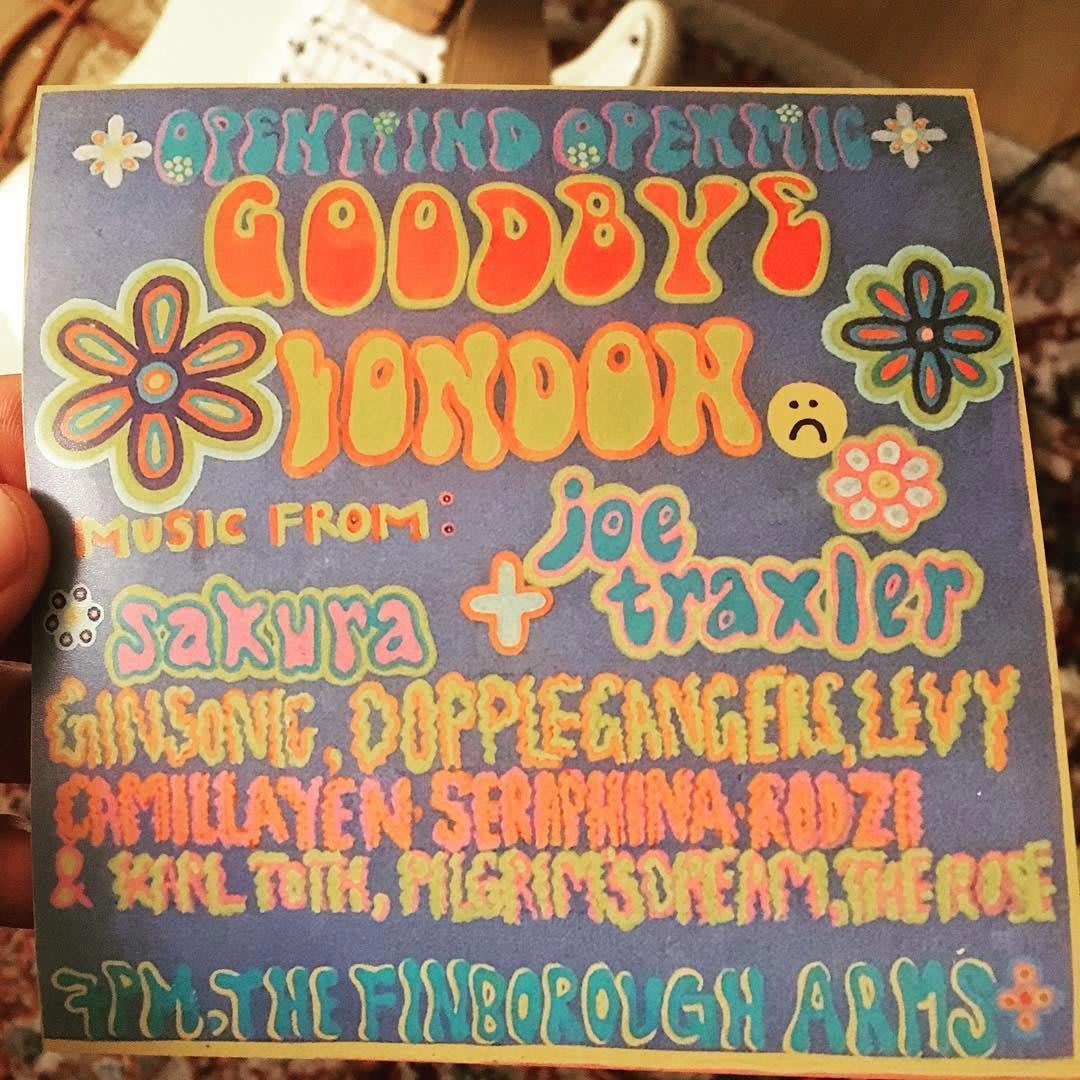 OPENMIND OPENMIC
GOODBYE
LONDON
MUSIC FROM:
sakura + joe traxler
GINSONIC, DOPPLEGANGERS, LEVY
CAMILLAYEN· SERAPHINA·RODZI
& KARL TOTH, PILGRIM'S DREAM, THE ROSE
7PM, THE FINBOROUGH ARMS